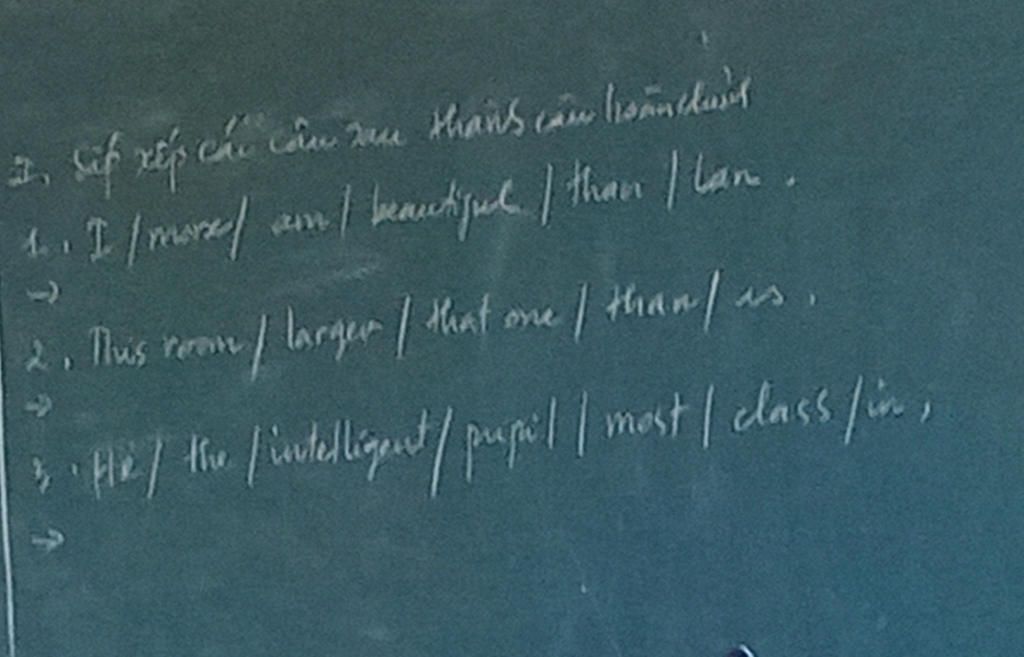 I, Sắp xếp các câu sau thành câu hoàn chỉnh
1. I / more / am / beautiful / than / Lan .
→
2. This room / larger / that one / than / is .
→
3. He / the / intelligent / pupil / most / class / in ,
→